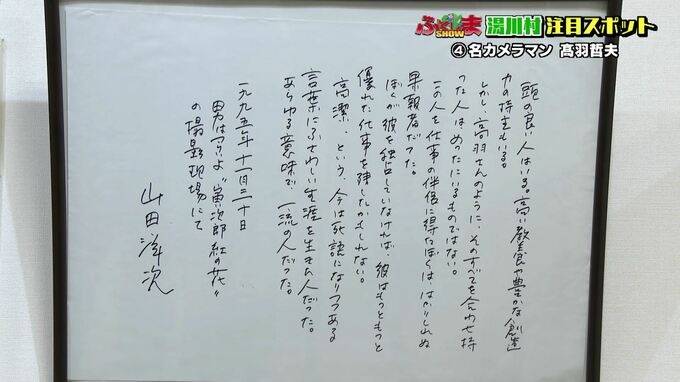 ふくしまSHOW
湯川村 注目スポット
④名カメラマン 髙羽哲夫
頭の良い人はいる。高い教養や豊かな創造
力の持主もいる。
しかし、高羽さんのように、そのすべてを合わせ持
った人はめったにいるものではない。
この人を仕事の伴侶に得たぼくは、はかりしれぬ
果報者だった。
ぼくが彼を独占していなければ、彼はもっともっと
優れた仕事を残したかもしれない。
高潔、という、今は死語になりつつある
言葉にふさわしい生涯を生きた人だった。
あらゆる意味で一流の人だった。
一九九五年十一月三十日
男はつらいよ"寅次郎紅の花"
の撮影現場にて
山田洋次